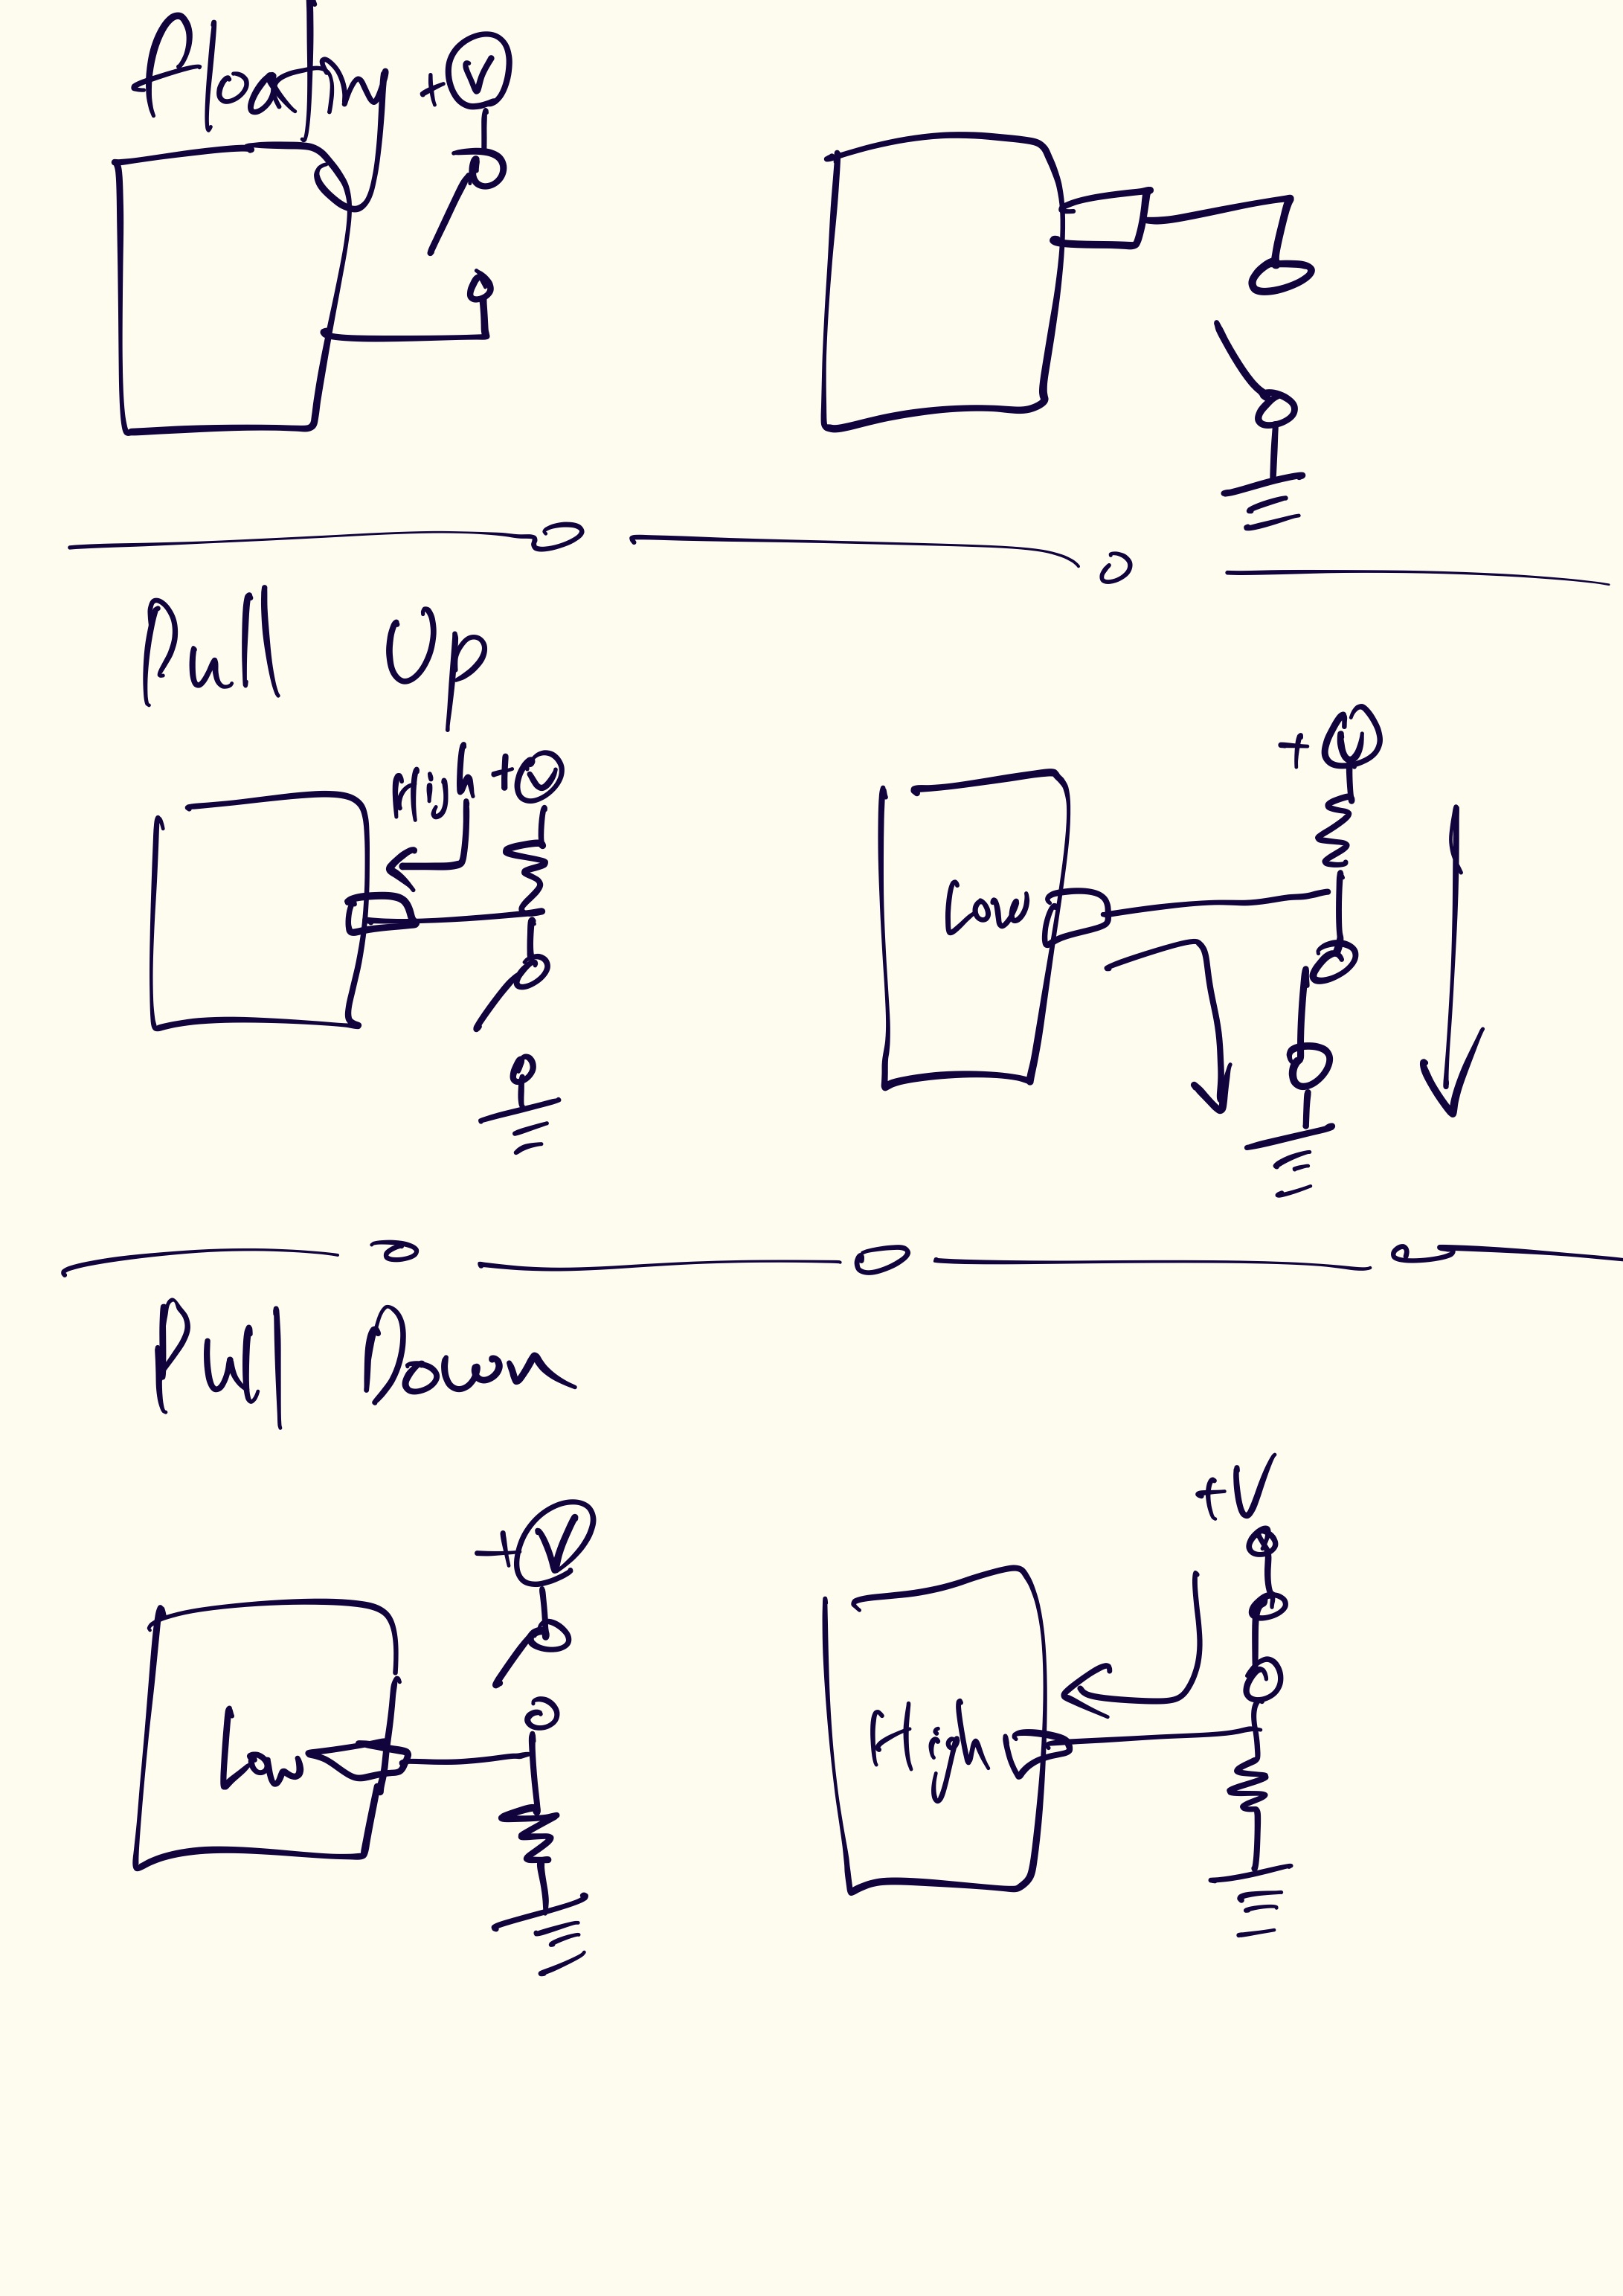 Floating
+V
Pull Up
High +V
+V
Low
Pull Down
+V
+V
Low
High